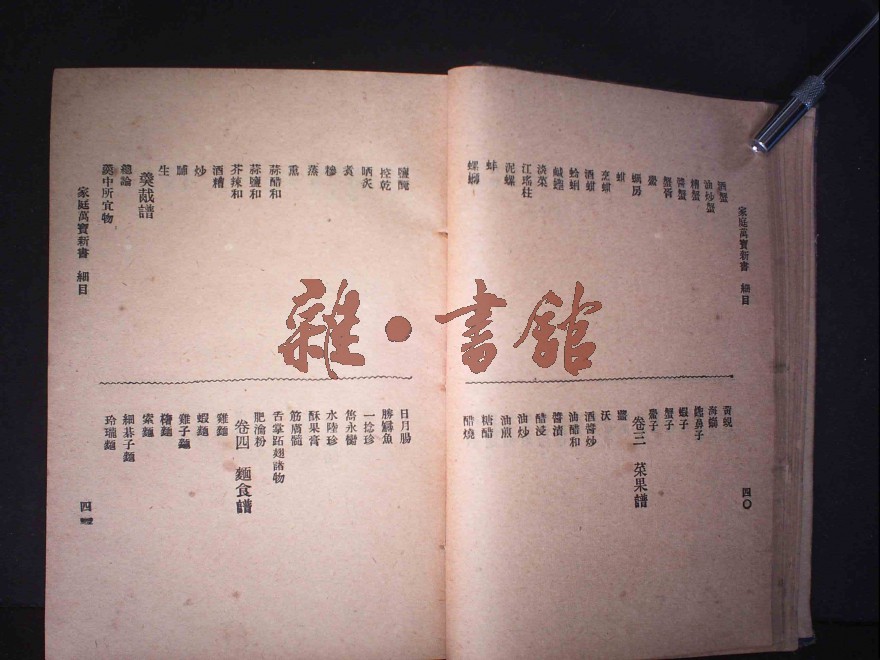 家庭萬寶新書 細目
四〇
酒蟹
油炒蟹
糟蟹
醬蟹
蟹膏
鱟
蠣房
蚶
烹蚶
酒蚶
蛤蜊
淡菜
江瑤柱
泥螺
蚌
螺螄
黃蜆
海螄
蝦子
蟹子
鱟子
卷三 菜果譜
鹽
沃
酒醬炒
油醋和
醬漬
醋浸
油炒
油煎
糖醋
醋燒
鹽醃
控乾
晒炙
煮
糝
蒸
熏
蒜醋和
蒜鹽和
芥辣和
酒糟
炒
脯
生
羹胾譜
總論
羹中所宜物
日月腸
一捻珍
水陸珍
酥果膏
筋膚髓
舌掌跖翅諸物
肥瀹粉
卷四 麵食譜
雞麵
蝦麵
雞子麵
索麵
細棊子麵
玲瓏麵
家庭萬寶新書 細目
雜·書館